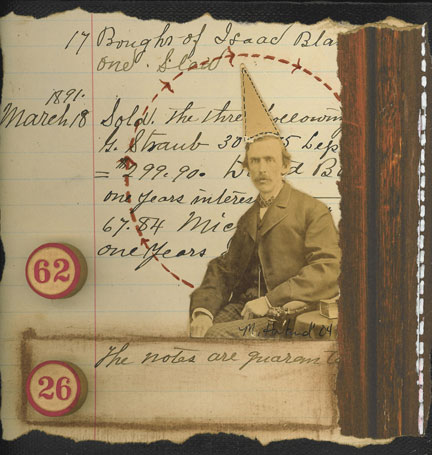 17 Bought of Isaac Bla
one
1891.
March 18 Sold the three following
G. Straub 30 Sep
= $299.90.
one years interes
67.84 Mic
one Years
62
The notes are guaran
26